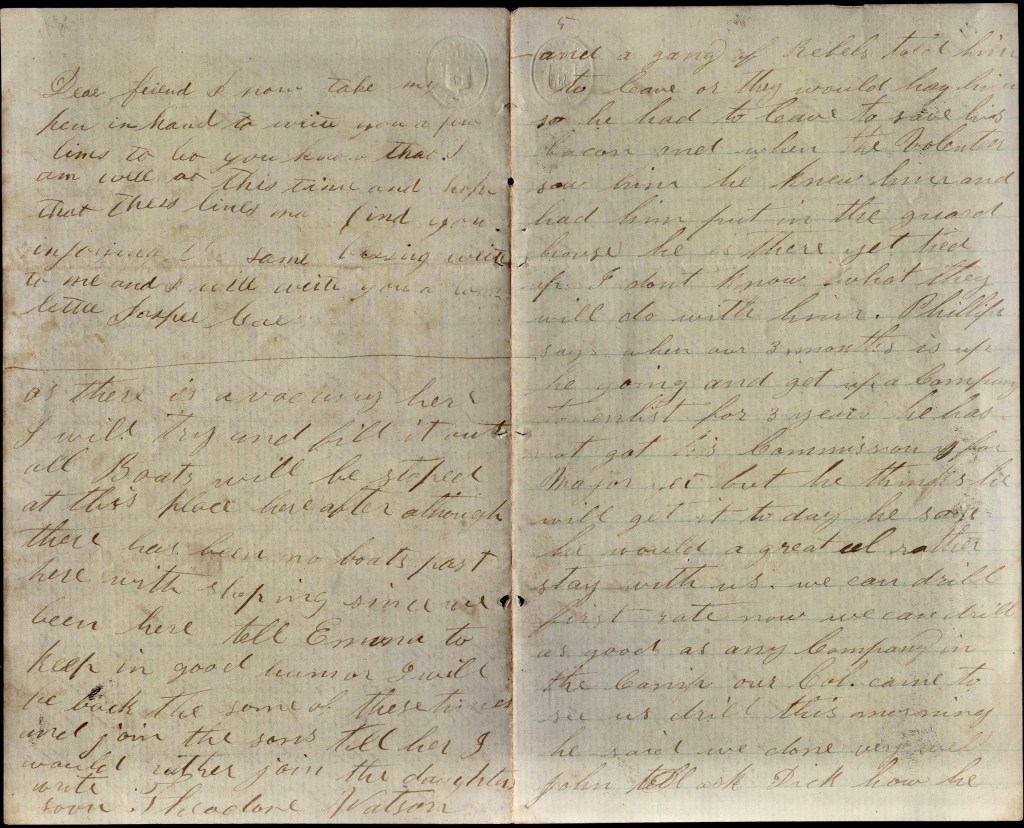 Dear friend I now take my
pen in hand to write you a few
lines to let you know that I
am well at this time and hope
that thes lines ma find you
injoining the same blessing write
to me and I will write you a
letter Jasper
as there is a vacancy here
I will try and fill it out
all Boats will be stoped
at this place here after although
there has been no boats past
here with stoping since we
been here tell Emma to
keep in good humor I will
be back the some of these times
and join the sons tell her I
would rather join the daughters
write
soon Theodore Watson
5
and a gang of Rebels told him
to leave or they would hang him
so he had to leave to save his
bacon and when the Volentier
saw him he knew him and
had him put in the guard
house he is there yet tied
up I dont know what they
will do with him. Phillips
says when our 3 months is up
he going and get up a Company
to enlist for 3 years he has
not got his Commission for
Major but he thinks he
will get it to day he says
he would a great eel rather
stay with us. we can drill
first rate now we can drill
as good as any Company in
the Camp our Col. came to
see us drill this morning
he said we done very well
John tell ask Dick how he